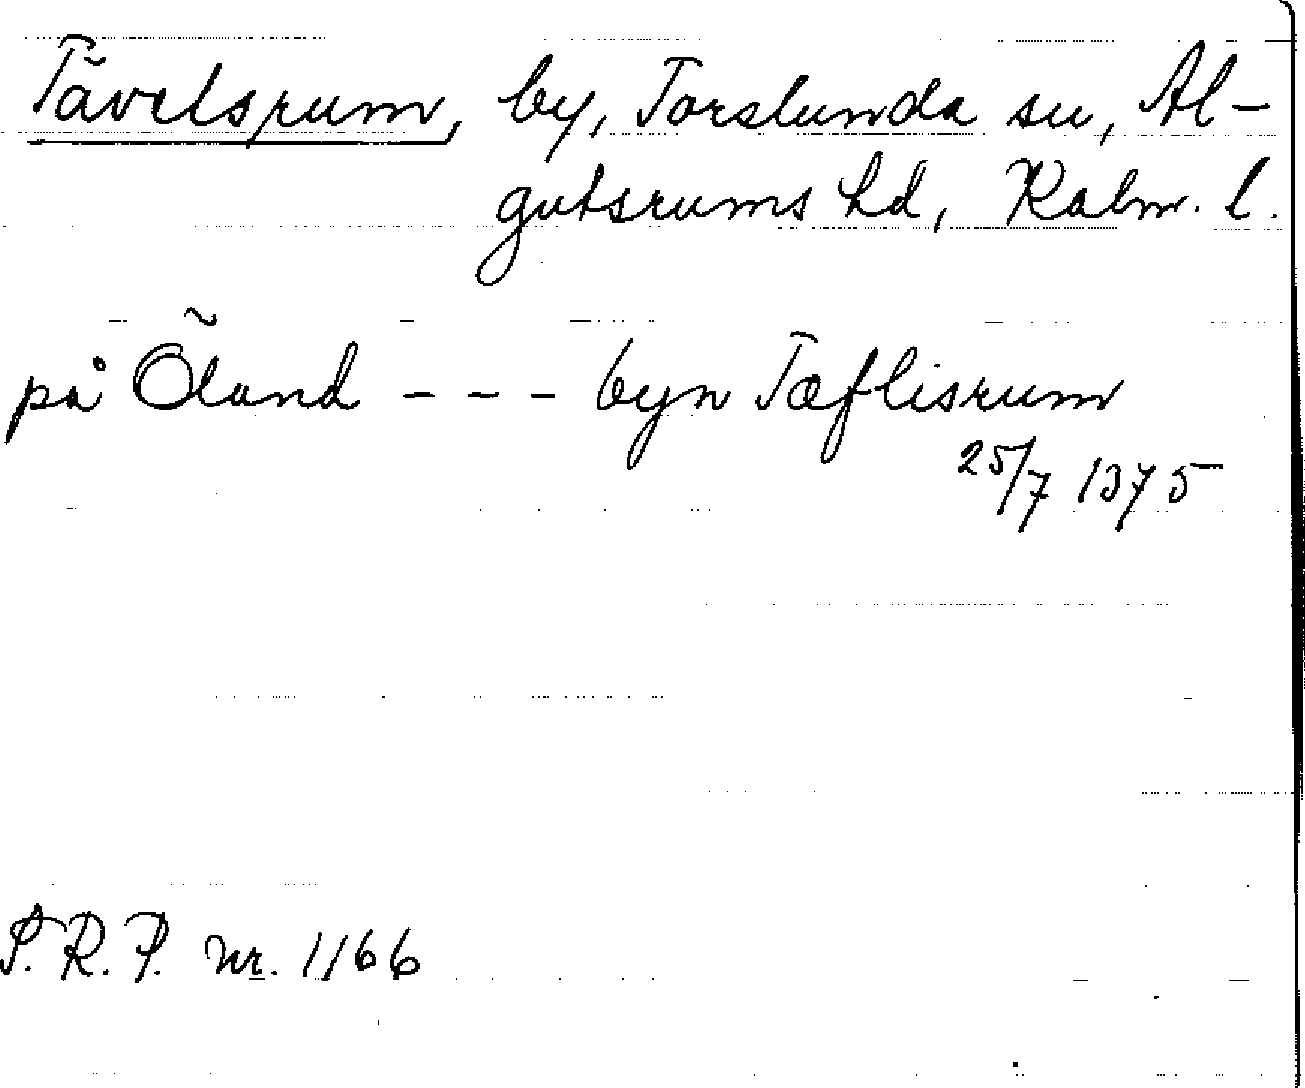 Tävelsrum, by, Torslunda sn, Al-
gutsrums hd, Kalm. l.
på Öland - - - byn Tæflisrum
25/7 1375
S.R.P. nr. 1166